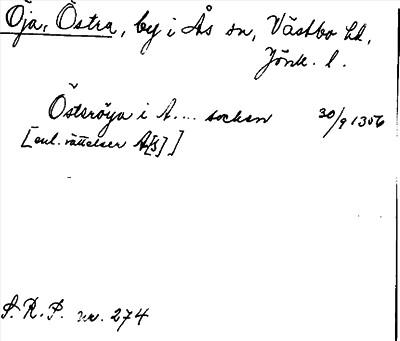 Öja, Östra, by i Ås sn, Västbo hd,
Jönk. l.
Österöya i A.... socken 30/9 1356
[enl. rättelser A[s]]
S. R. P. nr. 274